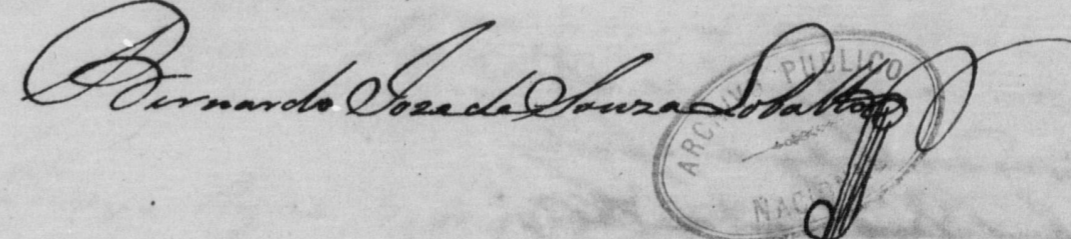 Bernardo Joze de Souza Lobatto
ARCHIVO PUBLICO
NACIONAL